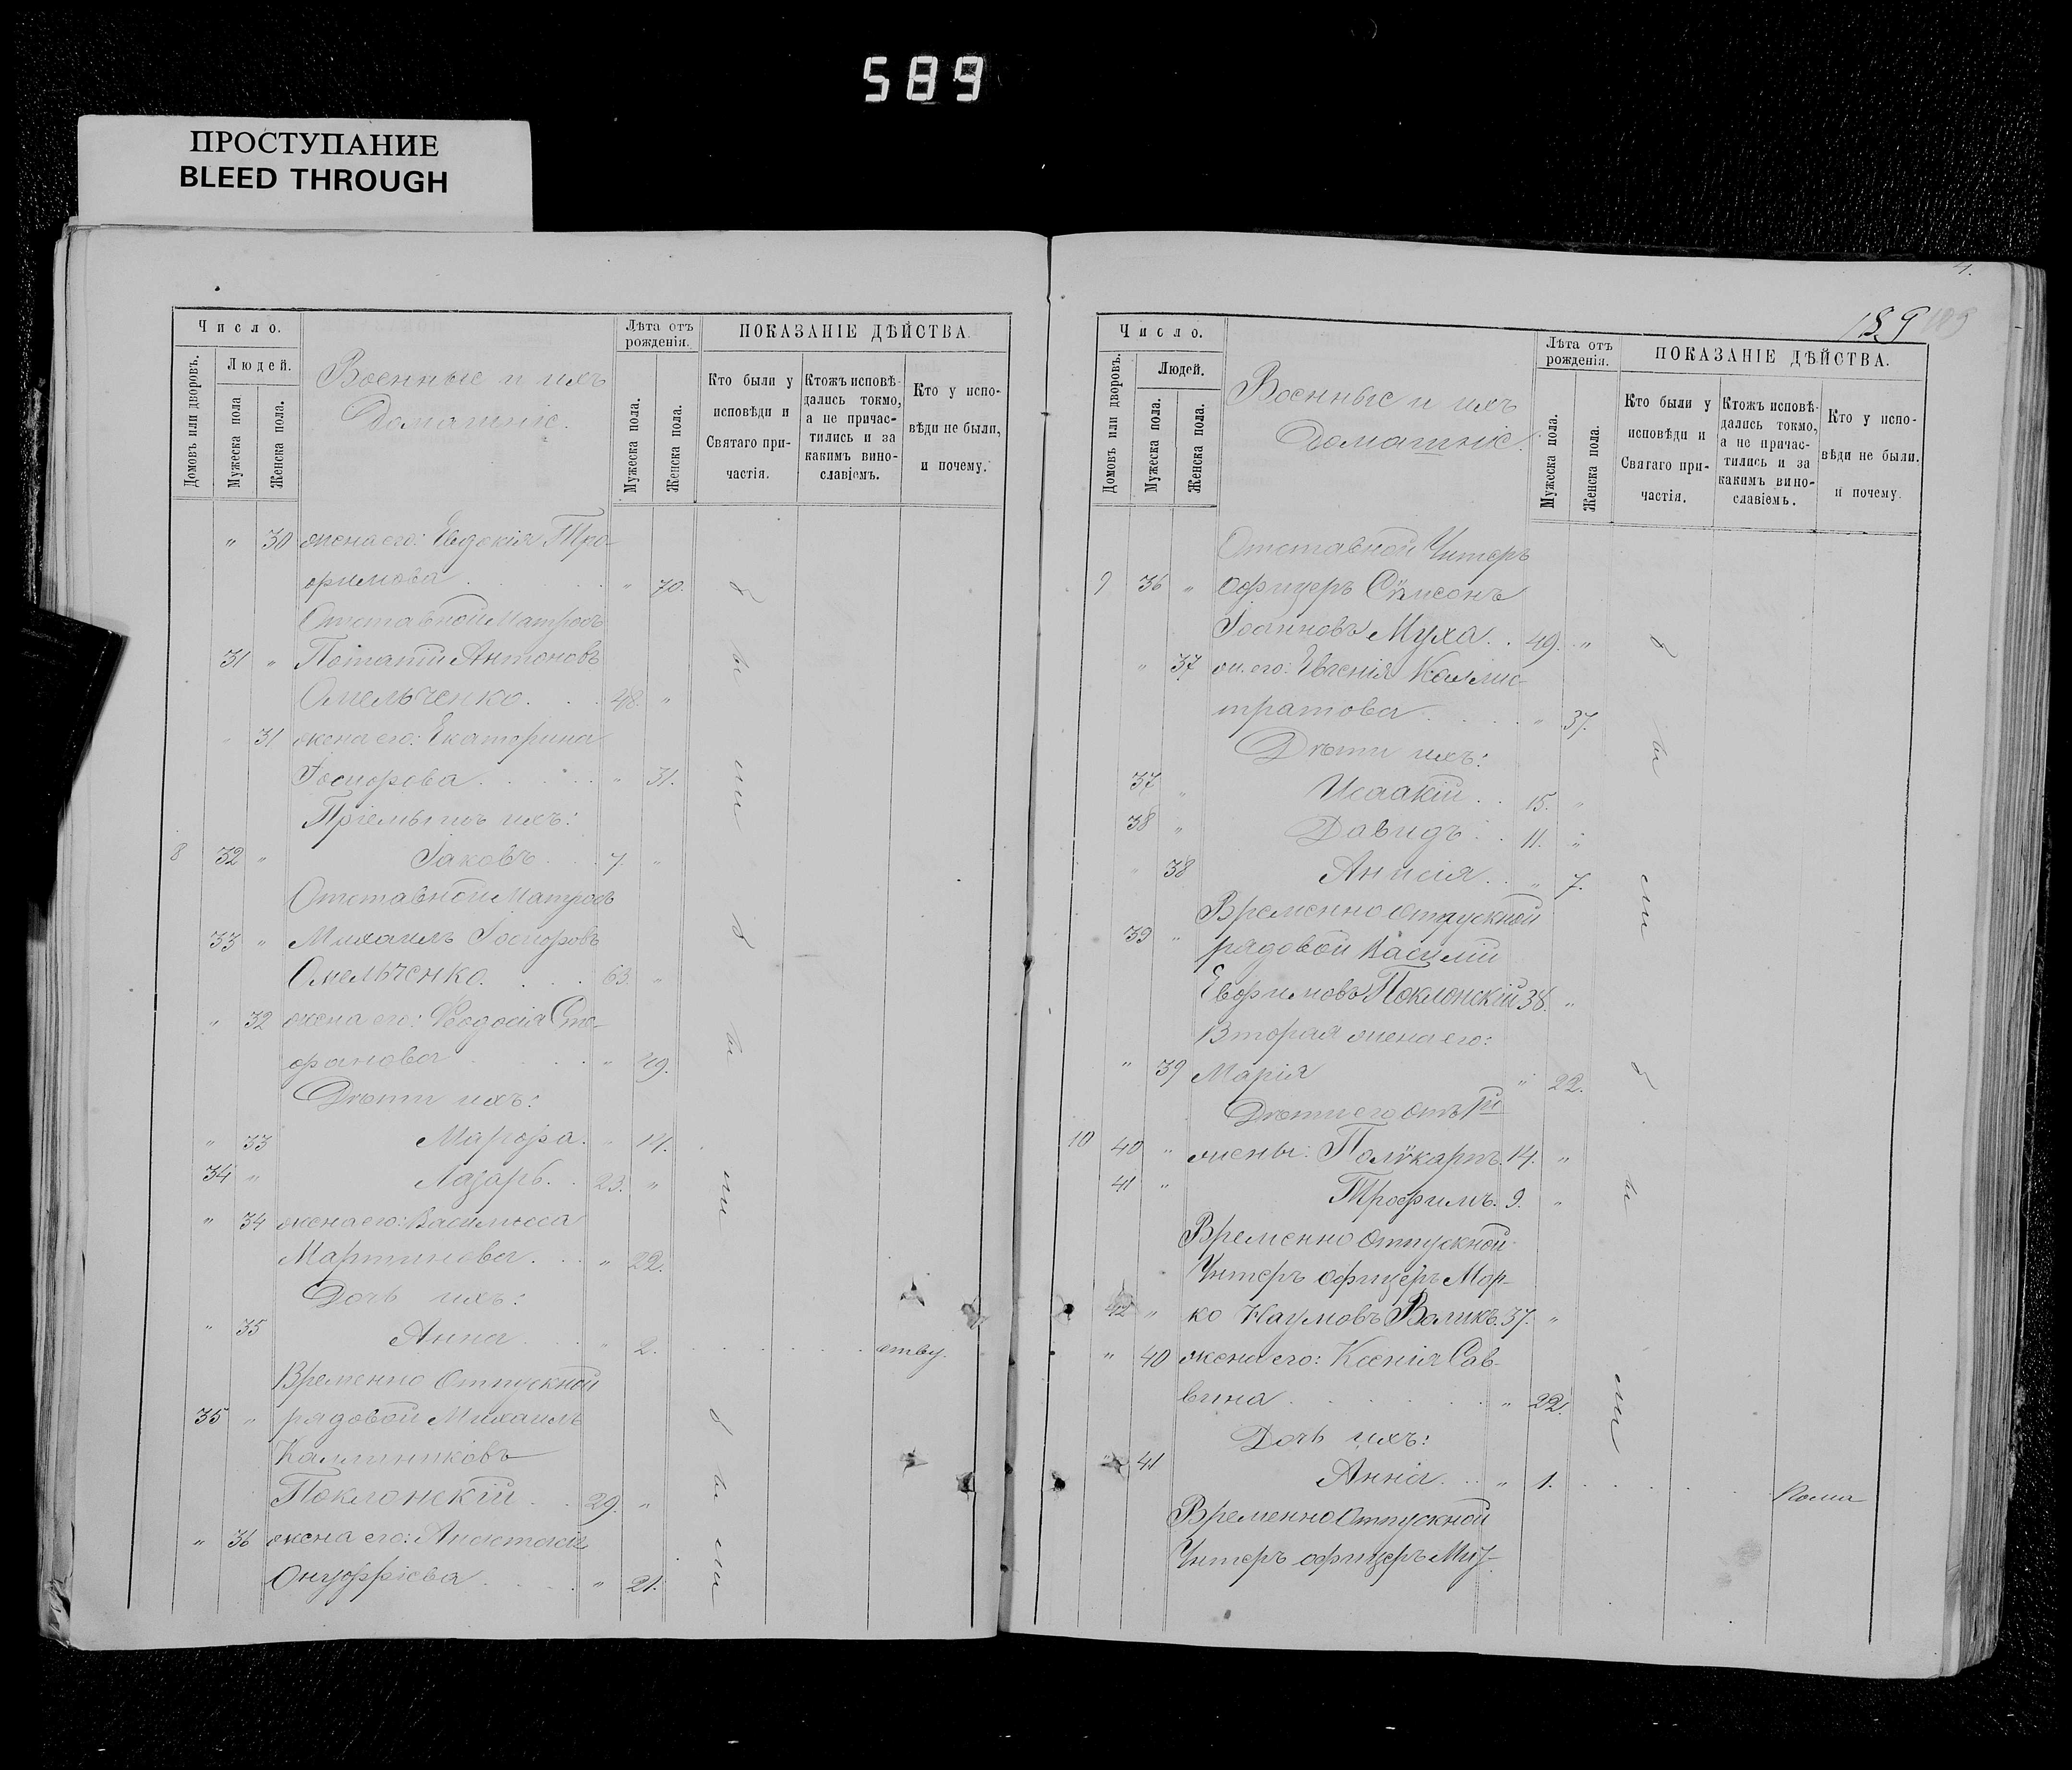 589
ПРОСТУПАНИЕ
BLEED THROUGH
Число.
Людей.
Домовъ или дворовъ.
Мужеска пола
Женска пола.
Военные и ихъ
Домашніе.
Лѣта отъ
рожденія.
Мужеска пола.
Женска пола.
ПОКАЗАНІЕ ДѢЙСТВА.
Кто были у
исповѣди и
Святаго при-
частія.
Ктожъ исповѣ-
дались токмо,
а не причас-
тились и за
какимъ вино-
славіемъ.
Кто у испо-
вѣди не были,
и почему.
" 30 жена его: Евдокія Тро-
фимова " 70.
Отставной Матросъ
31 " Потапій Антоновъ
Омельченко. 48. "
" 31 жена его: Екатерина
Іосифова. " 31.
Пріемышъ ихъ:
8 32 " Іаковъ 7. "
Отставной Матросъ
33 " Михаилъ Іосифовъ
Омельченко. 63. "
" 32 жена его: Ѳеодосія Сте-
фанова " 49.
Дѣти ихъ:
" 33 Марфа. " 14.
34 " Лазарь. 23. "
" 34 жена его: Василисса
Мартинова. " 22.
Дочь ихъ:
" 35 Анна " 2. ству.
Временно Отпускной
35 " рядовой Михаилъ
Каллиниковъ
Поклонскій 29. "
" 36 жена его: Анастасія
Онуфріева " 21.
были
были
были
4.
189 189
Число.
Людей.
Домовъ или дворовъ.
Мужеска пола.
Женска пола.
Военные и ихъ
Домашніе.
Лѣта отъ
рожденія.
Мужеска пола.
Женска пола.
ПОКАЗАНІЕ ДѢЙСТВА.
Кто были у
исповѣди и
Святаго при-
частія.
Ктожъ исповѣ-
дались токмо,
а не причас-
тились и за
какимъ вино-
славіемъ.
Кто у испо-
вѣди не были.
и почему.
Отставной Унтеръ
9 36 " Офицеръ Сѵмсонъ
Іоанновъ Муха. 49. "
" 37 ж. его: Евгенія Каллис-
тратова " 37.
Дѣти ихъ:
37 " Исаакій 15. "
38 " Давидъ 11. "
" 38 Анисія " 7.
Временно Отпускной
39 " рядовой Василій
Евфимовъ Поклонскій 38. "
Вторая жена его:
" 39 Марія " 22.
Дѣти его отъ 1й
10 40 " жены: Полѵкарпъ. 14. "
41 " Трофимъ. 9. "
Временно Отпускной
Унтеръ офицеръ Мар-
42 " ко Наумовъ Воликъ. 37. "
" 40 жена его: Ксенія Сав-
вина " 22.
Дочь ихъ:
" 41 Анна " 1.
Временно Отпускной
Унтеръ офицеръ
были
были